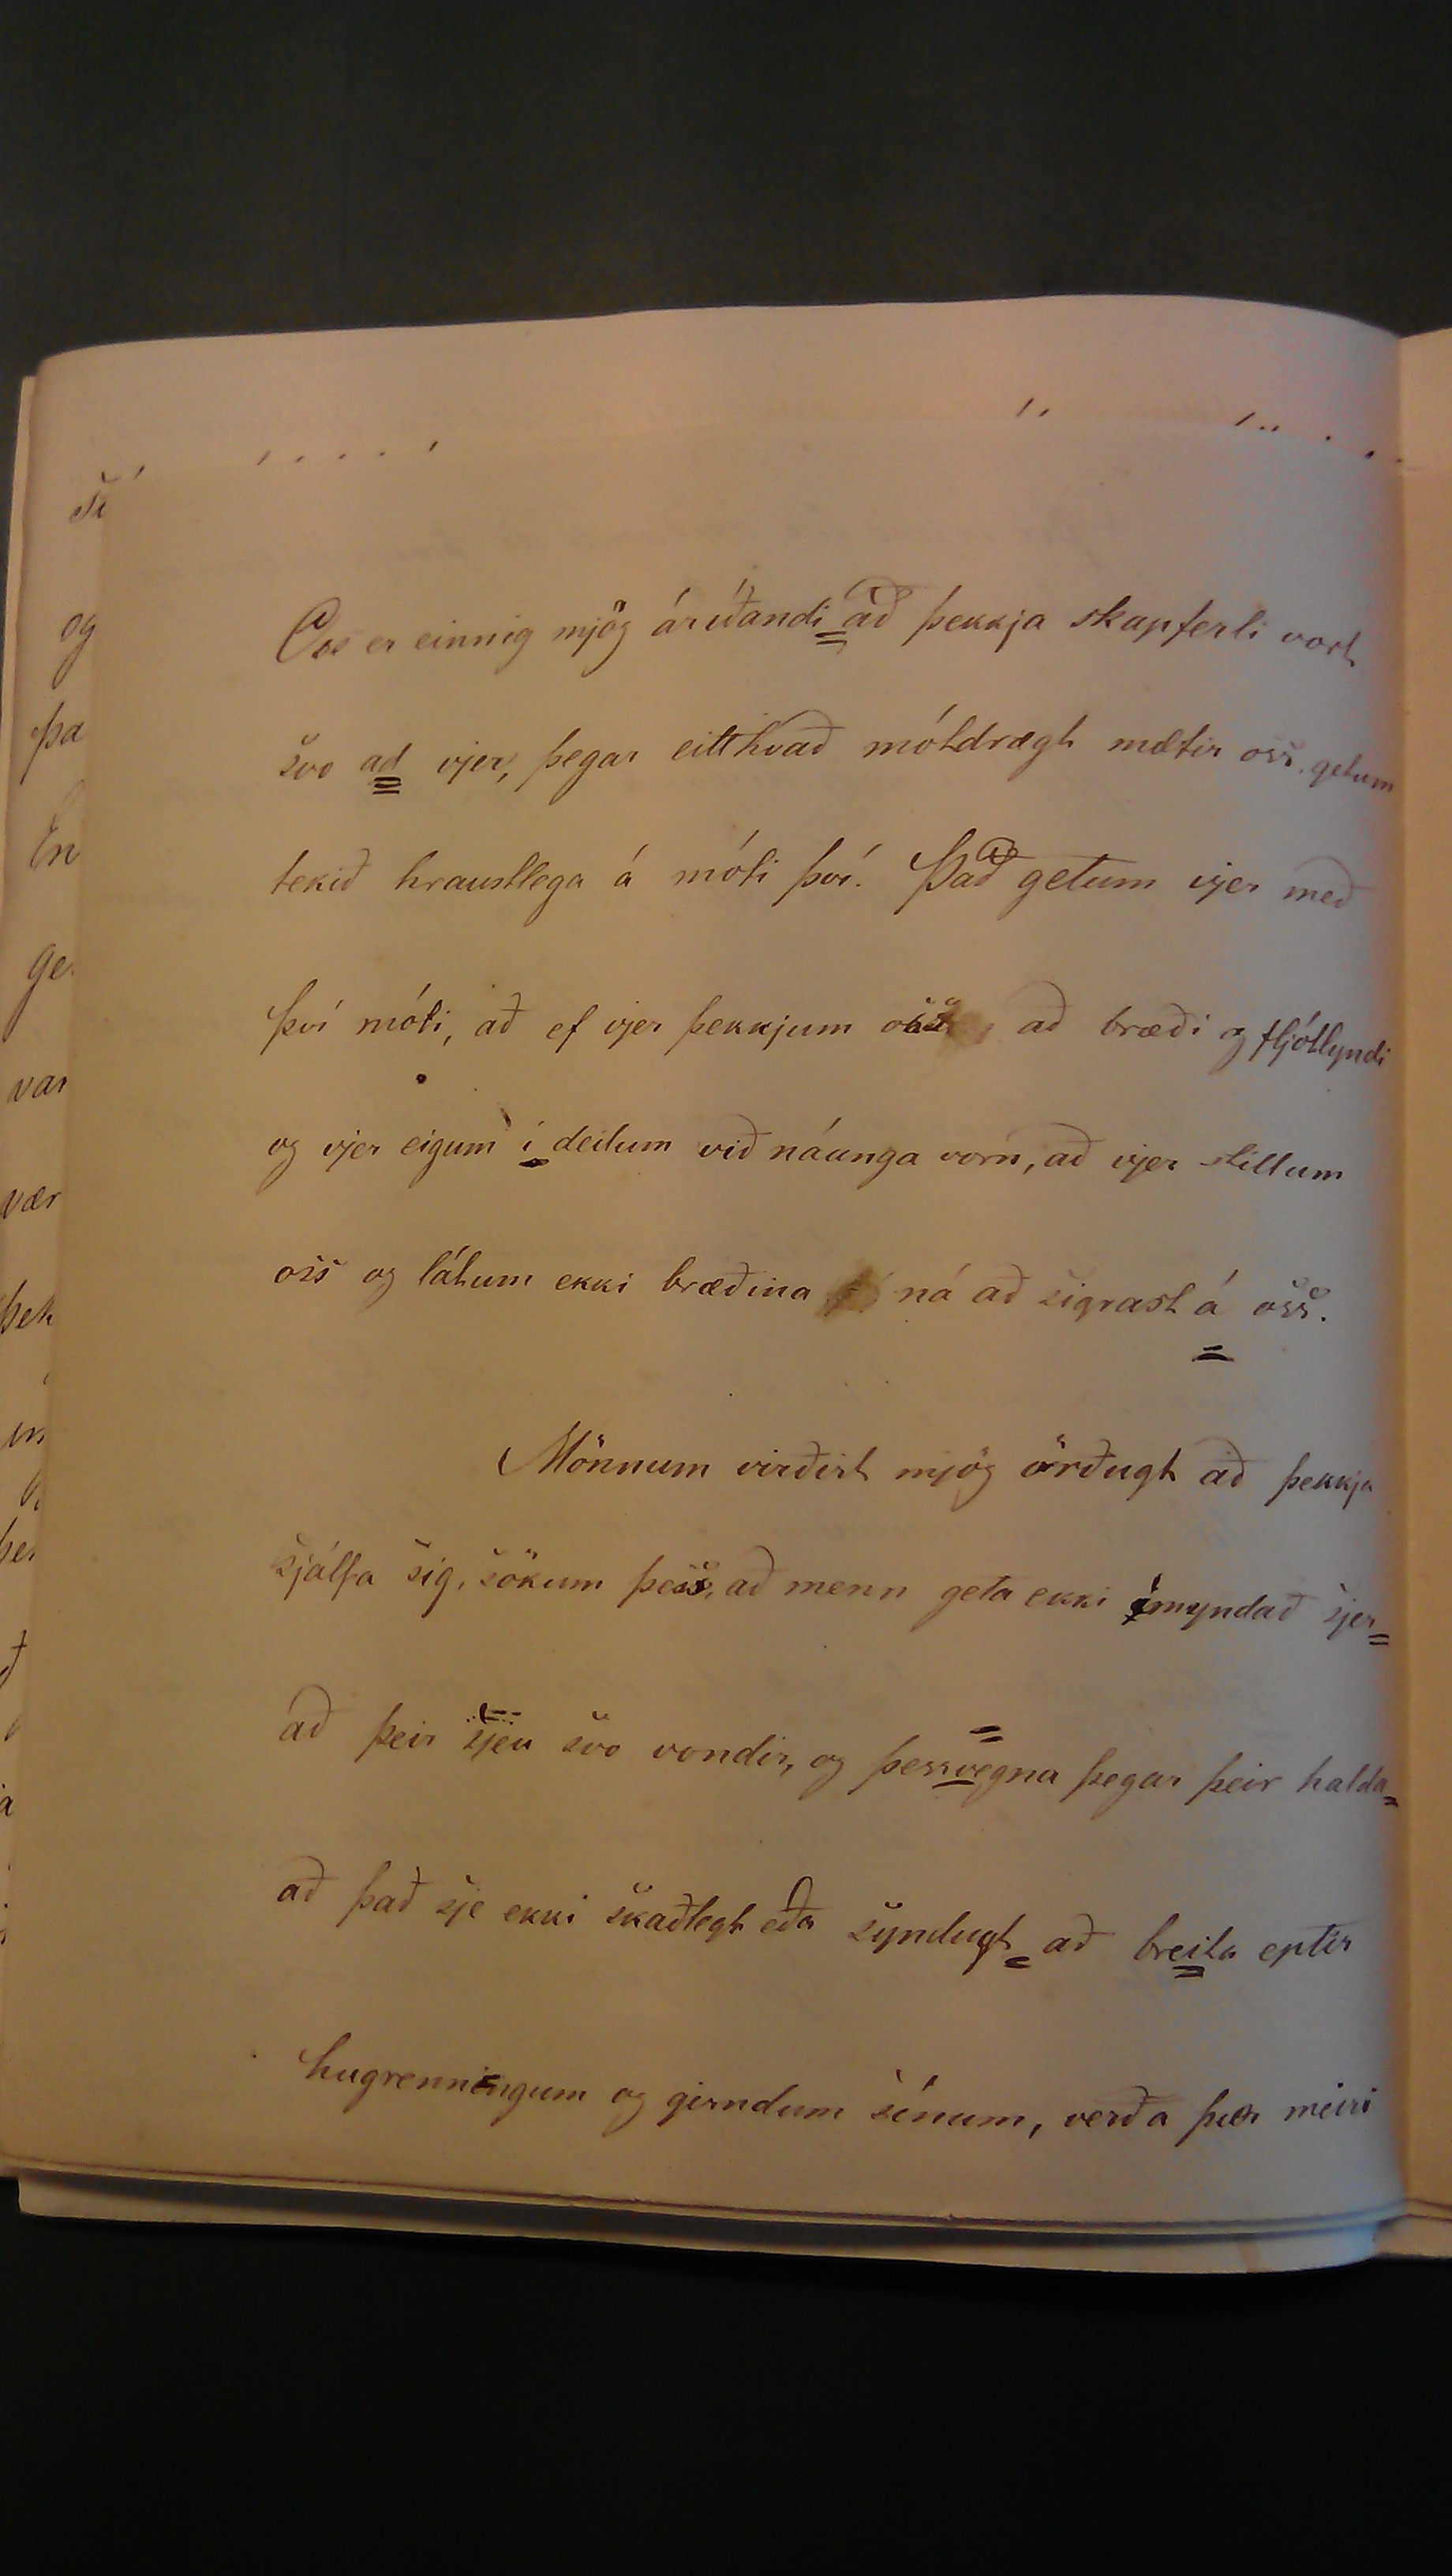 Oss er einnig mjög áríðandi að þekkja skapferli vort
svo ad vjer, þegar eitthvað mótdrægt mætir oss. getum
tekið hraustlega á móti því. Það getum vjer með
því móti, að ef vjer þekkjum oss, að bræði og fljótlyndi
og vjer eigum í deilum við náunga vorn, að vjer stillum
oss og látum ekki bræðina ná að sigrast á oss.
Mönnum virðist mjög örðugt að þekkja
sjálfa sig, sökum þess, að menn geta ekki ímyndað sjer
að þeir sjeu svo vondir, og þessvegna þegar þeir halda
að það sje ekki skaðlegt eða syndugt að breita eptir
hugrenningum og girndum sínum, verða þær meiri